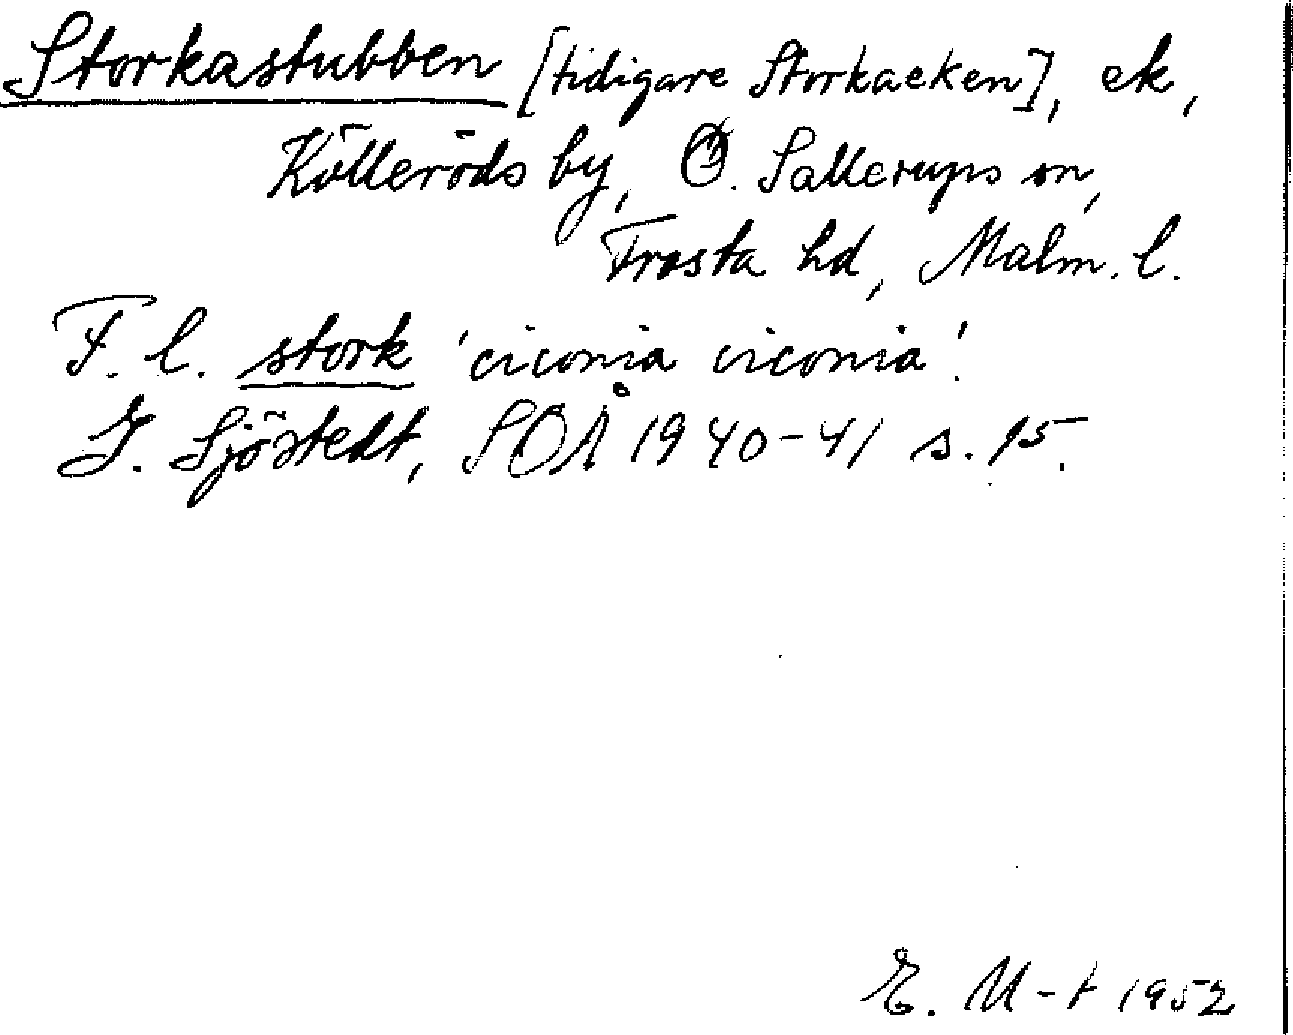 Storkastubben [tidigare Storkaeken], ek,
Kölleröds by, Ö. Sallerups sn,
Frosta hd, Malm. l.
F. l. stork 'ciconia ciconia'.
G. Sjöstedt, SOÅ 1940-41 s. 15.
E. M-t 1952